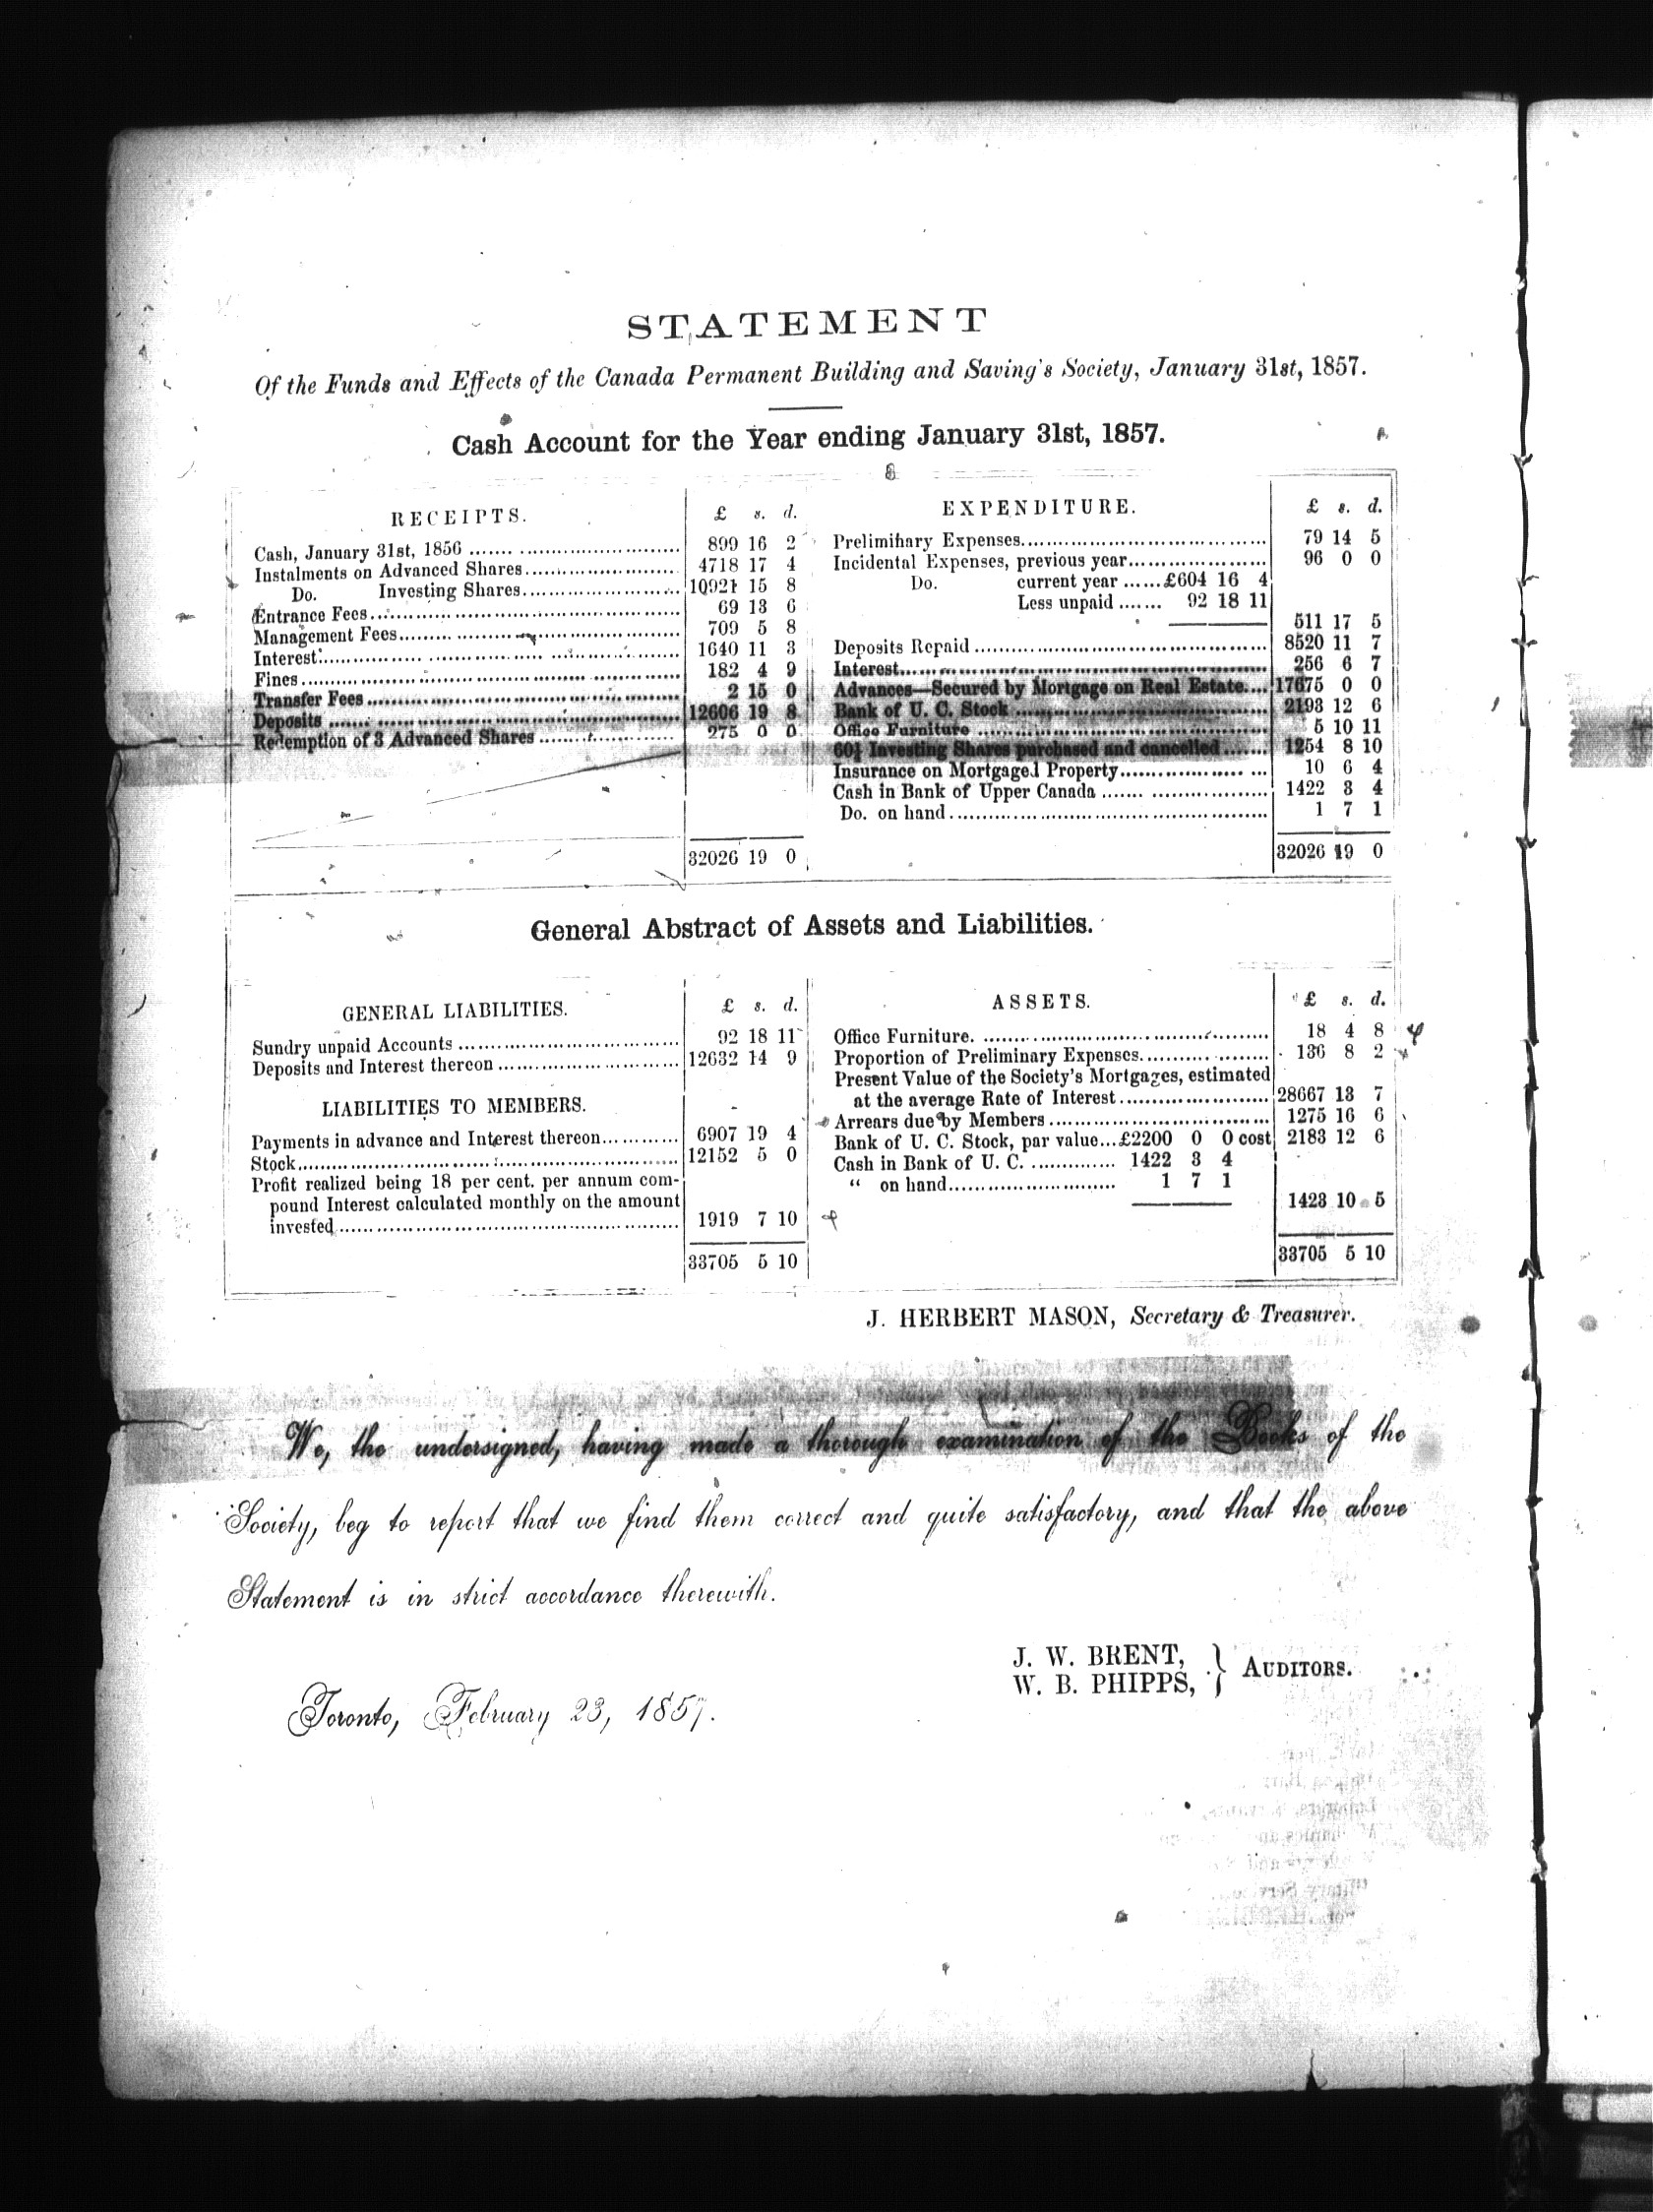 STATEMENT
Of the Funds and Effects of the Canada Permanent Building and Saving's Society, January 31st, 1857.
Cash Account for the Year ending January 31st, 1857.
RECEIPTS. £ s. d.
Cash, January 31st, 1856 899 16 2
Instalments on Advanced Shares 4718 17 4
Do. Investing Shares 10921 15 8
Entrance Fees 69 13 6
Management Fees 709 5 8
Interest 1640 11 3
Fines 182 4 9
Transfer Fees 2 15 0
Deposits 12606 19 8
Redemption of 3 Advanced Shares 275 0 0
32026 19 0
EXPENDITURE. £ s. d.
Preliminary Expenses 79 14 5
Incidental Expenses, previous year 96 0 0
Do. current year £604 16 4
Less unpaid 92 18 11
511 17 5
Deposits Repaid 8520 11 7
Interest 256 6 7
Advances—Secured by Mortgage on Real Estate 17675 0 0
Bank of U. C. Stock 2193 12 6
Office Furniture 5 10 11
60½ Investing Shares purchased and cancelled 1254 8 10
Insurance on Mortgaged Property 10 6 4
Cash in Bank of Upper Canada 1422 3 4
Do. on hand 1 7 1
32026 19 0
General Abstract of Assets and Liabilities.
GENERAL LIABILITIES. £ s. d.
Sundry unpaid Accounts 92 18 11
Deposits and Interest thereon 12632 14 9
LIABILITIES TO MEMBERS.
Payments in advance and Interest thereon 6907 19 4
Stock 12152 5 0
Profit realized being 18 per cent. per annum com-
pound Interest calculated monthly on the amount
invested 1919 7 10
33705 5 10
ASSETS. £ s. d.
Office Furniture. 18 4 8
Proportion of Preliminary Expenses 136 8 2
Present Value of the Society's Mortgages, estimated
at the average Rate of Interest 28667 13 7
Arrears due by Members 1275 16 6
Bank of U. C. Stock, par value...£2200 0 0 cost 2183 12 6
Cash in Bank of U. C. 1422 3 4
“ on hand 1 7 1
1423 10 5
33705 5 10
J. HERBERT MASON, Secretary & Treasurer.
We, the undersigned, having made a thorough examination of the Books of the
Society, beg to report that we find them correct and quite satisfactory, and that the above
Statement is in strict accordance therewith.
J. W. BRENT,
W. B. PHIPPS, } AUDITORS.
Toronto, February 23, 1857.